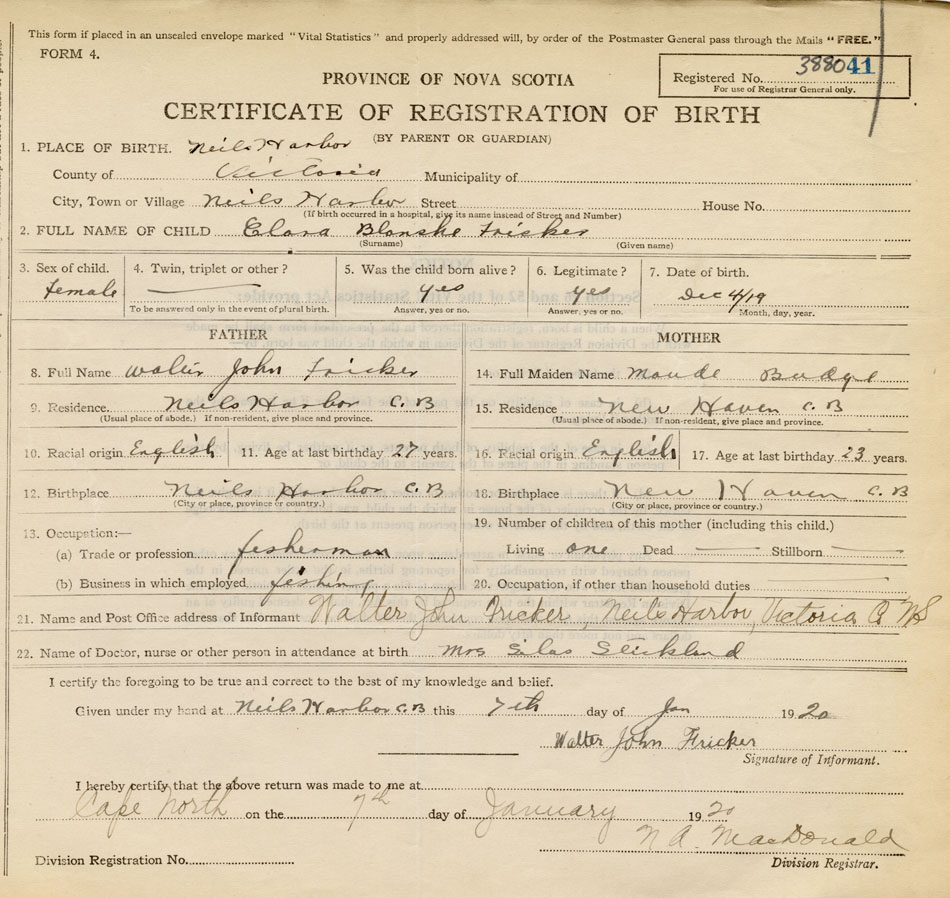 This form if placed in an unsealed envelope marked "Vital Statistics" and properly addressed will, by order of the Postmaster General pass through the Mails "FREE."
FORM 4.
PROVINCE OF NOVA SCOTIA
Registered No. 388041
For use of Registrar General only.
CERTIFICATE OF REGISTRATION OF BIRTH
(BY PARENT OR GUARDIAN)
1. PLACE OF BIRTH. Neils Harbor
County of Victoria Municipality of
City, Town or Village Neils Harbor Street House No.
(If birth occurred in a hospital, give its name instead of Street and Number)
2. FULL NAME OF CHILD Clara Blanshe Fricker
(Surname) (Given name)
3. Sex of child. 4. Twin, triplet or other? 5. Was the child born alive? 6. Legitimate? 7. Date of birth.
female yes yes Dec 4/19
To be answered only in the event of plural birth. Answer, yes or no. Answer, yes or no. Month, day, year.
FATHER MOTHER
8. Full Name Walter John Fricker 14. Full Maiden Name Maude Budge
9. Residence Neils Harbor C.B 15. Residence New Haven C.B
(Usual place of abode.) If non-resident, give place and province. (Usual place of abode.) If non-resident, give place and province.
10. Racial origin English 11. Age at last birthday 27 years. 16. Racial origin English 17. Age at last birthday 23 years.
12. Birthplace Neils Harbor C.B 18. Birthplace New Haven C.B
(City or place, province or country.) (City or place, province or country.)
13. Occupation:— 19. Number of children of this mother (including this child.)
(a) Trade or profession fisherman Living one Dead Stillborn
(b) Business in which employed fishing 20. Occupation, if other than household duties
21. Name and Post Office address of Informant Walter John Fricker, Neils Harbor, Victoria Co NS
22. Name of Doctor, nurse or other person in attendance at birth Mrs Silas Stickland
I certify the foregoing to be true and correct to the best of my knowledge and belief.
Given under my hand at Neils Harbor C.B this 7th day of Jan 1920
Walter John Fricker
Signature of Informant.
I hereby certify that the above return was made to me at
Cape North on the 7th day of January 1920
N A. MacDonald
Division Registration No. Division Registrar.